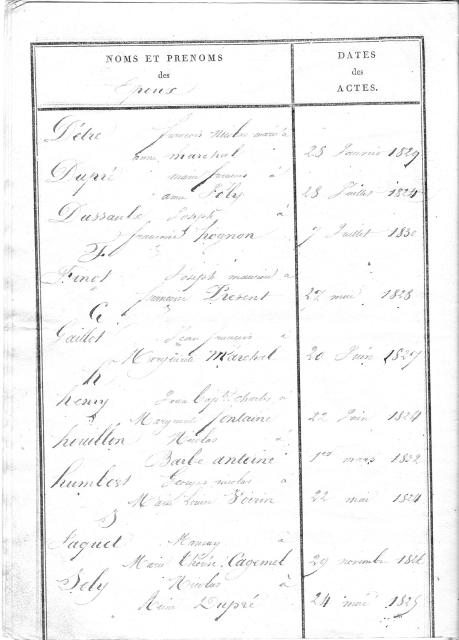 NOMS ET PRENOMS
des
Epoux
DATES
des
ACTES.
Détré françois nicolas marié à
anne marchal 28 Janvier 1829
Dupré françois à
anne Jély 28 Juillet 1824
Dussaulx Joseph à
hognon 7 Juillet 1830
F
Finot Joseph à
Présent 27 mai 1828
G
Gaillot Jean françois à
Marguerite Marchal 20 Juin 1827
h
henry Jean Bapt. charles à
Marguerite fontaine 22 Juin 1824
houillon Nicolas à
Barbe antoine 1er mars 1832
humbert nicolas à
Marie Louise Voirin 22 mai 1824
J
Jaquet Mansuy à
Marie Thérèse Cagemel 29 novembre
Jély Nicolas à
Dupré 24 mai 1825